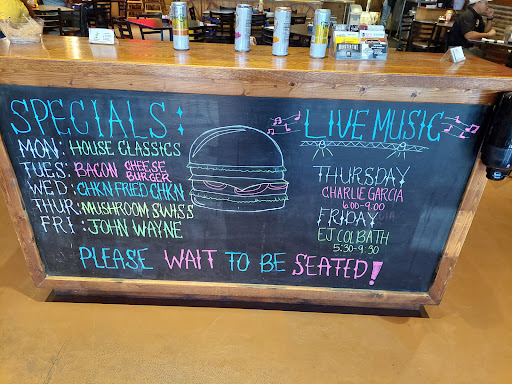 SPECIALS:
MON: HOUSE CLASSICS
TUES: BACON CHEESE BURGER
WED: CHKN FRIED CHKN
THUR: MUSHROOM SWISS
FRI: JOHN WAYNE
LIVE MUSIC
THURSDAY
CHARLIE GARCIA
6:00-9:00
FRIDAY
EJ COLBATH
5:30-9:30
PLEASE WAIT TO BE SEATED!